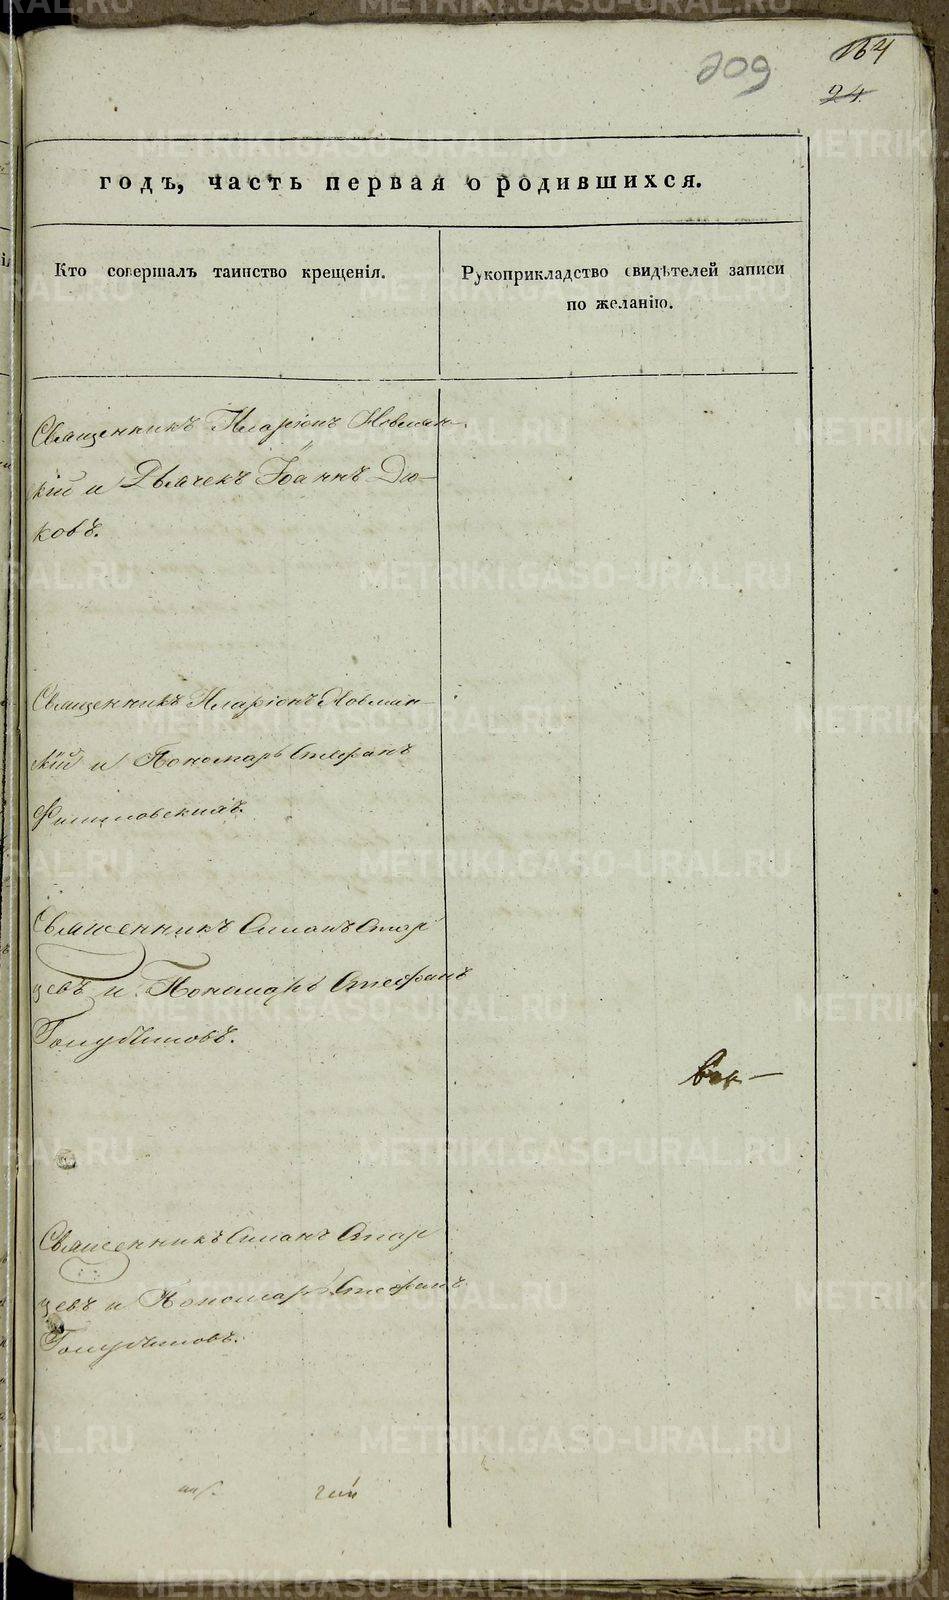 209
164
24
годъ, часть первая о родившихся.
Кто совершалъ таинство крещенія.
Рукоприкладство свидѣтелей записи
по желанію.
Священникъ Иларіонъ
кій и Дьячекъ Іоаннъ Дю-
ковъ.
Священникъ Иларіонъ
кій и Пономарь Стефанъ
Священникъ Симонъ Стар
цевъ и Пономарь Стефанъ
Голубчиковъ.
Священникъ Симонъ Стар
цевъ и Пономарь Стефанъ
Голубчиковъ.
METRIKI.GASO-URAL.RU